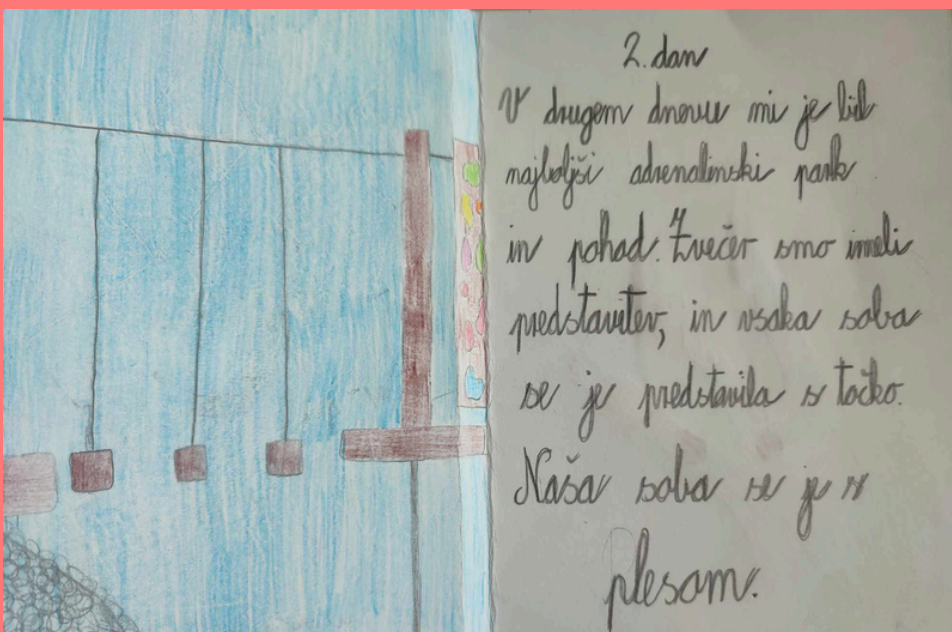 2. dan
V drugem dnevu mi je bil
najboljši adrenalinski park
in pohod. Zvečer smo imeli
predstavitev, in vsaka soba
se je predstavila s točko.
Naša soba se je s
plesam.